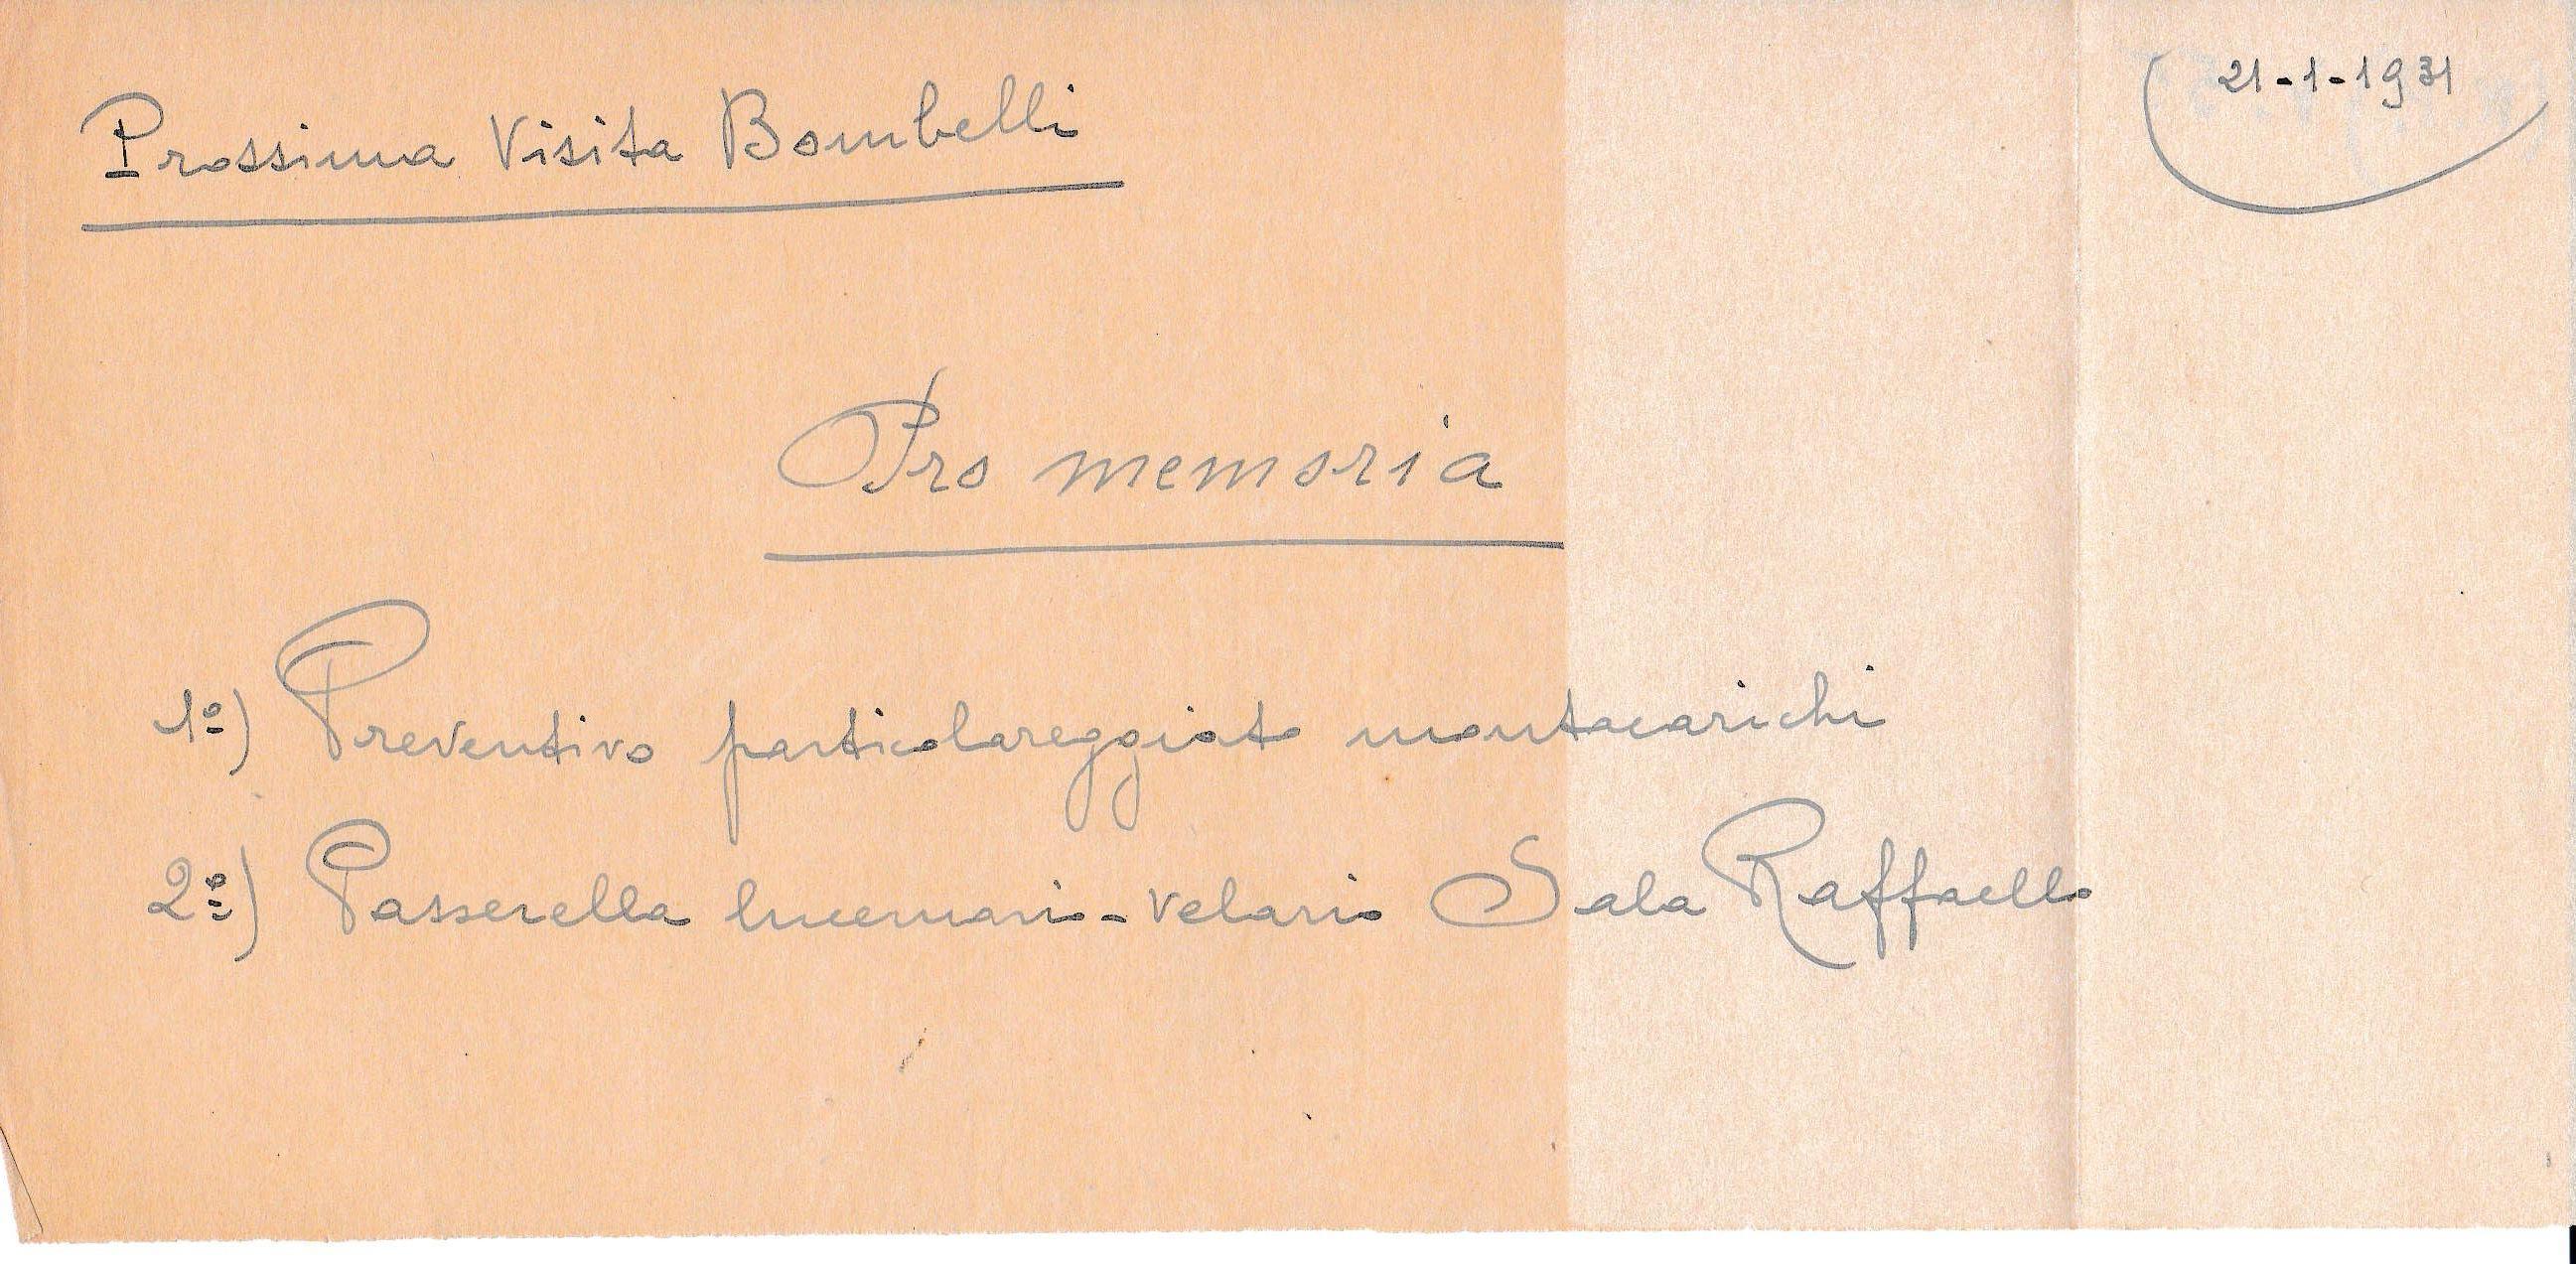 Prossima Visita Bombelli
21-1-1931
Pro memoria
1º) Preventivo particolareggiato montacarichi
2º) Passerella lucernario-velario Sala Raffaello